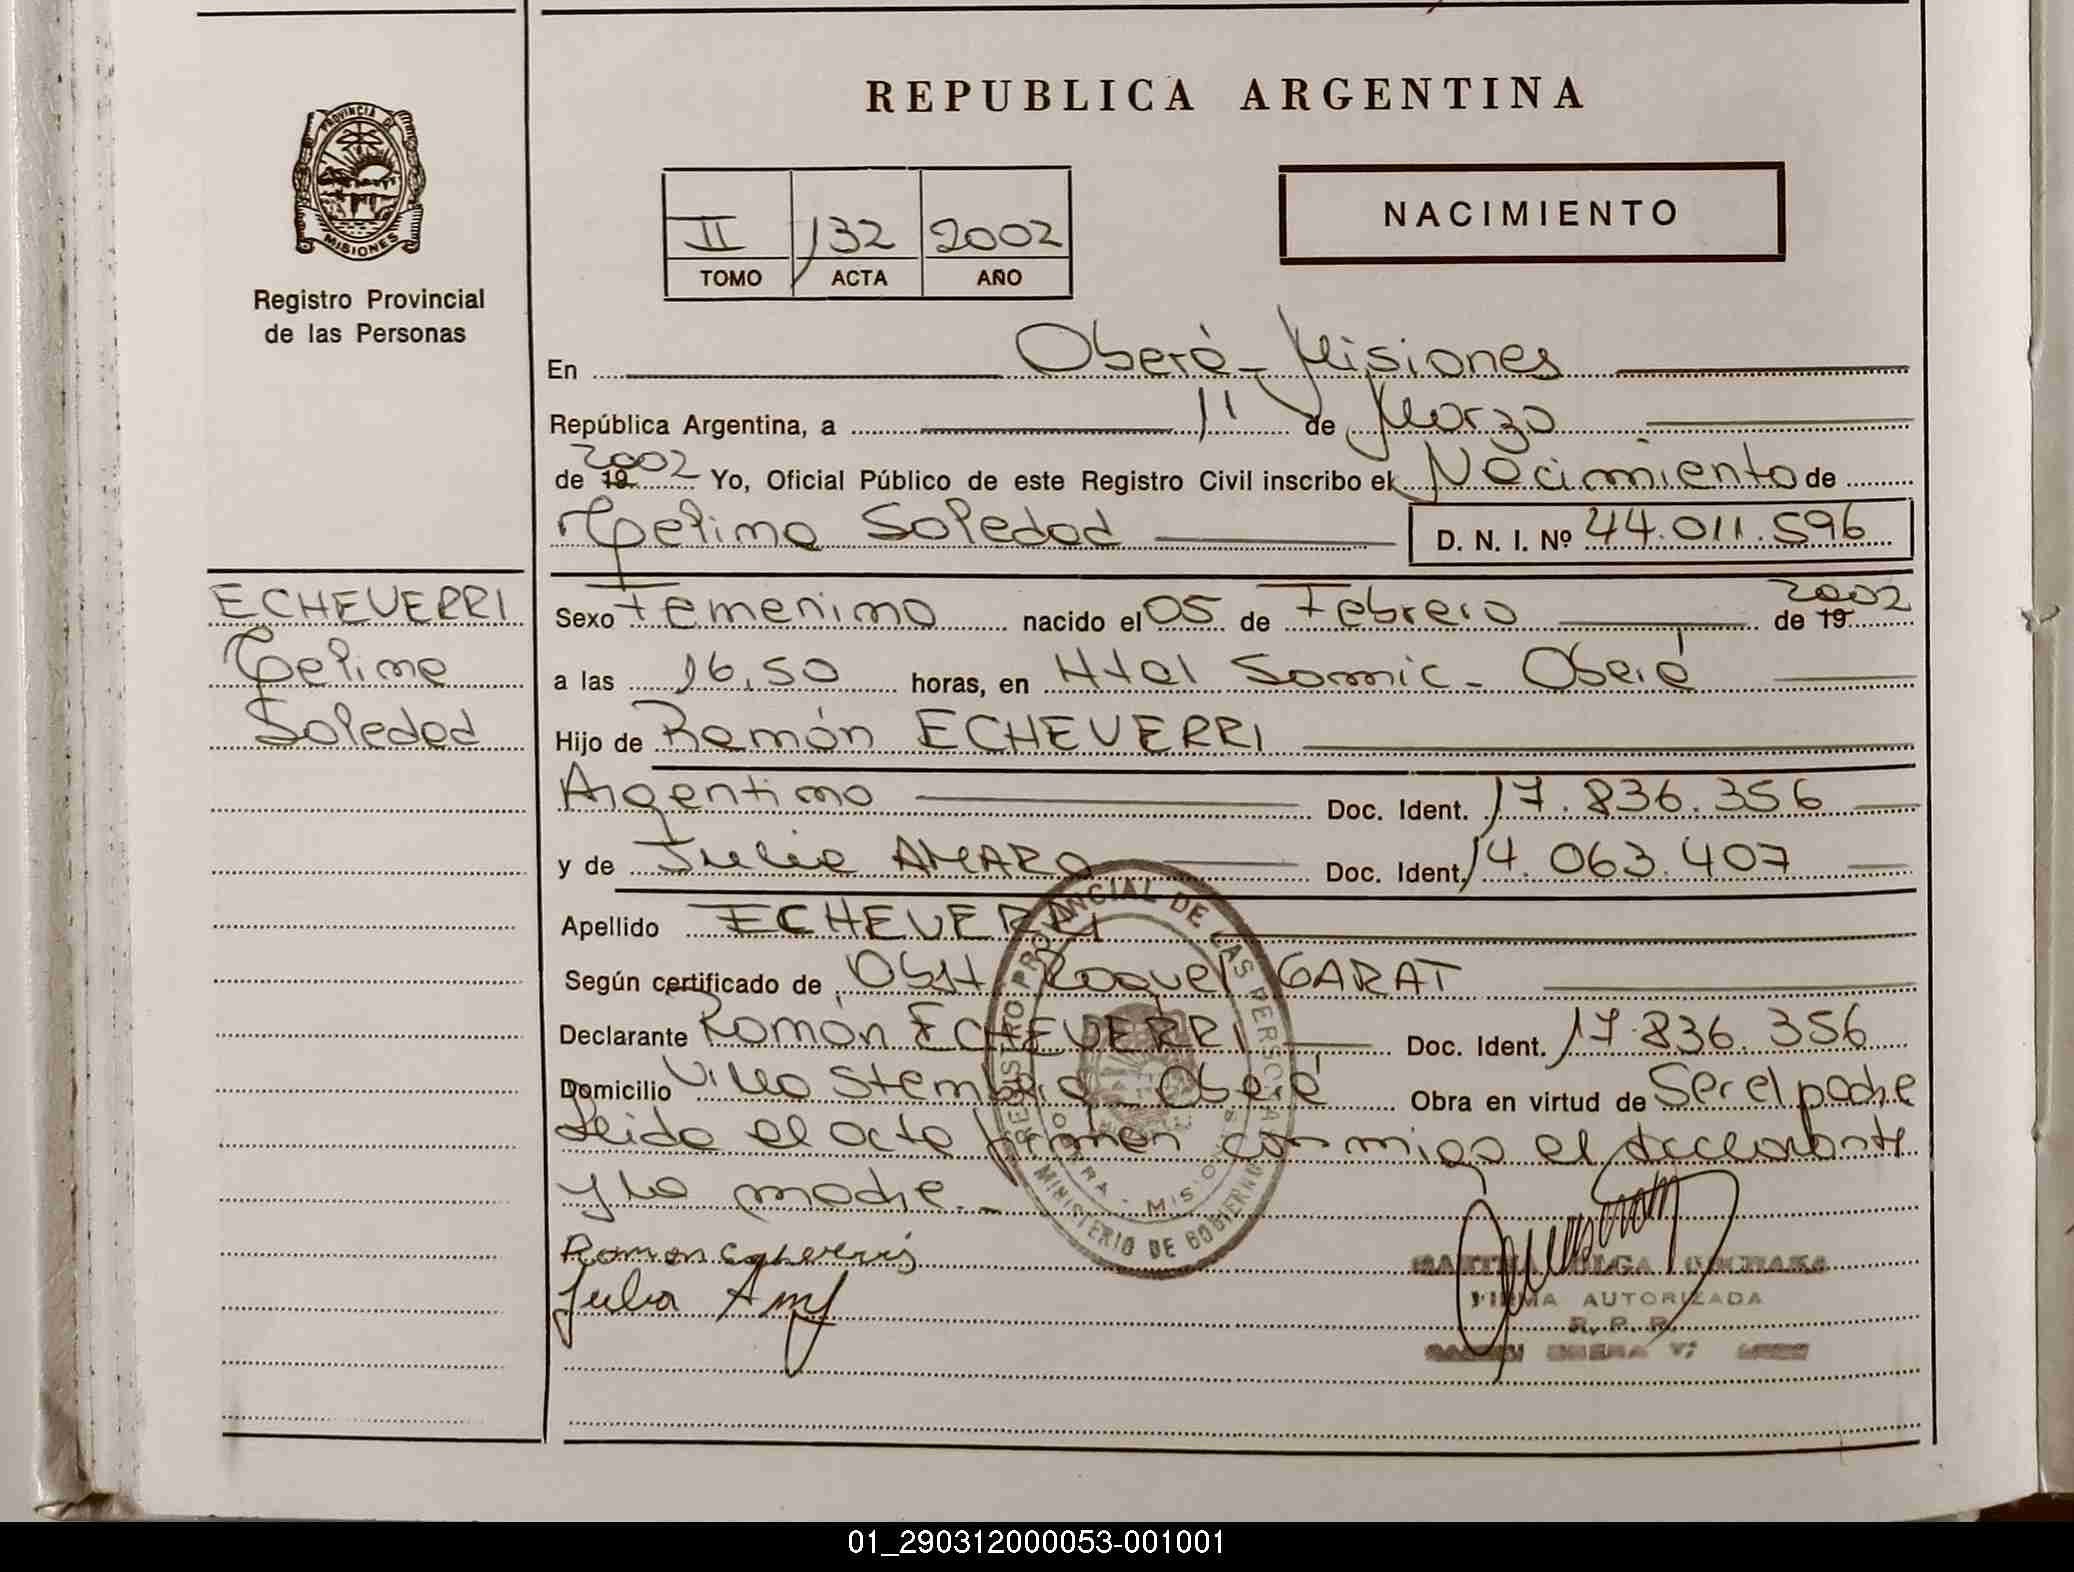 REPUBLICA ARGENTINA
PROVINCIA DE MISIONES
Registro Provincial
de las Personas
II 132 2002
TOMO ACTA AÑO
NACIMIENTO
En Oberá - Misiones
República Argentina, a 11 de Marzo
de 19 2002 Yo, Oficial Público de este Registro Civil inscribo el Nacimiento de
Soledad D. N. I. Nº 44.011.596
ECHEVERRI
Soledad
Sexo Femenino nacido el 05 de Febrero de 19 2002
a las 16,50 horas, en Htal Samic - Oberá
Hijo de Ramón ECHEVERRI
Argentino Doc. Ident. 17.836.356
y de Julia AMARO Doc. Ident. 14.063.407
Apellido ECHEVERRI
Según certificado de Obst Raquel GARAT
Declarante Ramón ECHEVERRI Doc. Ident. 17.836.356
Domicilio Villa Stemberg - Oberá Obra en virtud de Ser el padre
Leida el acta firman conmigo el declarante
y la madre.-
REGISTRO PROVINCIAL DE LAS PERSONAS
MINISTERIO DE GOBIERNO
MISIONES
Ramon Echeverri
Julia
OLGA
FIRMA AUTORIZADA
R. P. P.
01_290312000053-001001